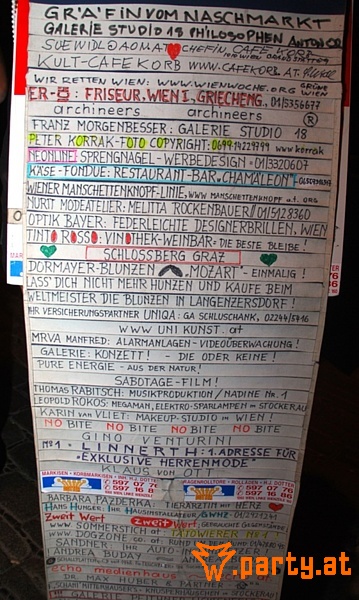 GRÄFIN VOM NASCHMARKT
GALERIE STUDIO 18 PHILOSOPHEN
SUEWIDL@AON.AT CHEFIN CAFE KORB
KULT-CAFE KORB WWW.CAFEKORB.AT
WIR RETTEN WIEN: WWW.WIENWOCHE.ORG GRÜNE WIEN
ER-Ö: FRISEUR, WIEN I, GRIECHENG. 01/5356677
archineers archineers ®
FRANZ MORGENBESSER: GALERIE STUDIO 18
PETER KORRAK-FOTO COPYRIGHT: 0699-14229799 www.korrak
NEONLINE SPRENGNAGEL-WERBEDESIGN 01/3320607
KÄSE-FONDUE: RESTAURANT-BAR „CHAMÄLEON"
WIENER MANSCHETTENKNOPF-LINIE, WWW.MANSCHETTENKNOPF.at.ORG
NURIT MODEATELIER: MELITTA ROCKENBAUER/ 01/5128360
OPTIK BAYER: FEDERLEICHTE DESIGNERBRILLEN, WIEN
TINTO ROSSO: VINOTHEK-WEINBAR: DIE BESTE BLEIBE!
SCHLOSSBERG GRAZ
DORMAYER-BLUNZEN „MOZART" - EINMALIG!
LASS' DICH NICHT MEHR HUNZEN UND KAUFE BEIM
WELTMEISTER DIE BLUNZEN IN LANGENZERSDORF!
IHR VERSICHERUNGSPARTNER UNIQA: GA SCHLUSCHANK, 02244/5416
WWW UNI KUNST.at
MRVA MANFRED: ALARMANLAGEN-VIDEOÜBERWACHUNG!
GALERIE: KONZETT! - DIE ODER KEINE!
PURE ENERGIE - AUS DER NATUR!
SABOTAGE-FILM!
THOMAS RABITSCH: MUSIKPRODUKTION / NADINE Nr. 1
LEOPOLD ROKOS: MEGAMAN, ELEKTRO-SPARLAMPEN in STOCKERAU
KARIN van VLIET: MAKEUP-STUDIO in WIEN!
NO BITE NO BITE NO BITE NO BITE
GINO VENTURINI
Nº1 - LINNERTH: 1. ADRESSE FÜR
„EXKLUSIVE HERRENMODE"
KLAUS VON OTT
MARKISEN • KORBMARKISEN • ING. H.J. GOTTEN
597 07 76
597 02 18
ROLLADEN • ING. H.J. GOTTEN
597 07 76
597 02 18
BARBARA PAZDERKA: TIERARZTIN MIT HERZ
HANS HUNGER, IHR HAUSINSTALLATEUR
Zweit Wert zweit wert
WWW.SOMMERSTICH.at TÄTOWIERER Nº 1
WWW.DOGZONE
SAITDNER IHR AUTO
ANDREA BUDAY
echo medienhaus
DR. MAX HUBER & PARTNER
party.at